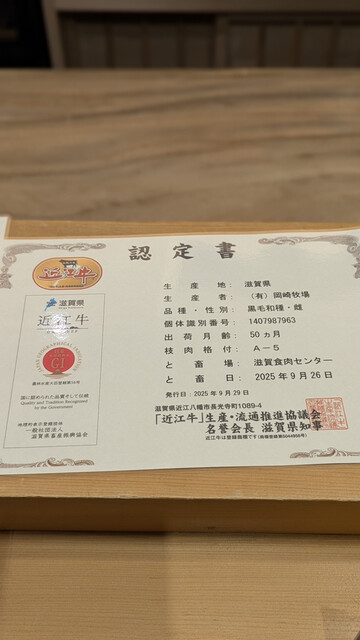 近江牛
認定書
滋賀県
近江牛
GI
農林水産大臣登録第56号
国に認められた品質そして伝統
Quality and Tradition Recognized
by the Government
地理的表示登録団体
一般社団法人
滋賀県畜産振興協会
生産地： 滋賀県
生産者： （有）岡崎牧場
品種・性別： 黒毛和種・雌
個体識別番号： 1407987963
出荷月齢： 50ヵ月
枝肉格付： A－5
と畜場： 滋賀食肉センター
と畜日： 2025年9月26日
発行日：2025年9月29日
滋賀県近江八幡市長光寺町1089-4
「近江牛」生産・流通推進協議会
名誉会長 滋賀県知事